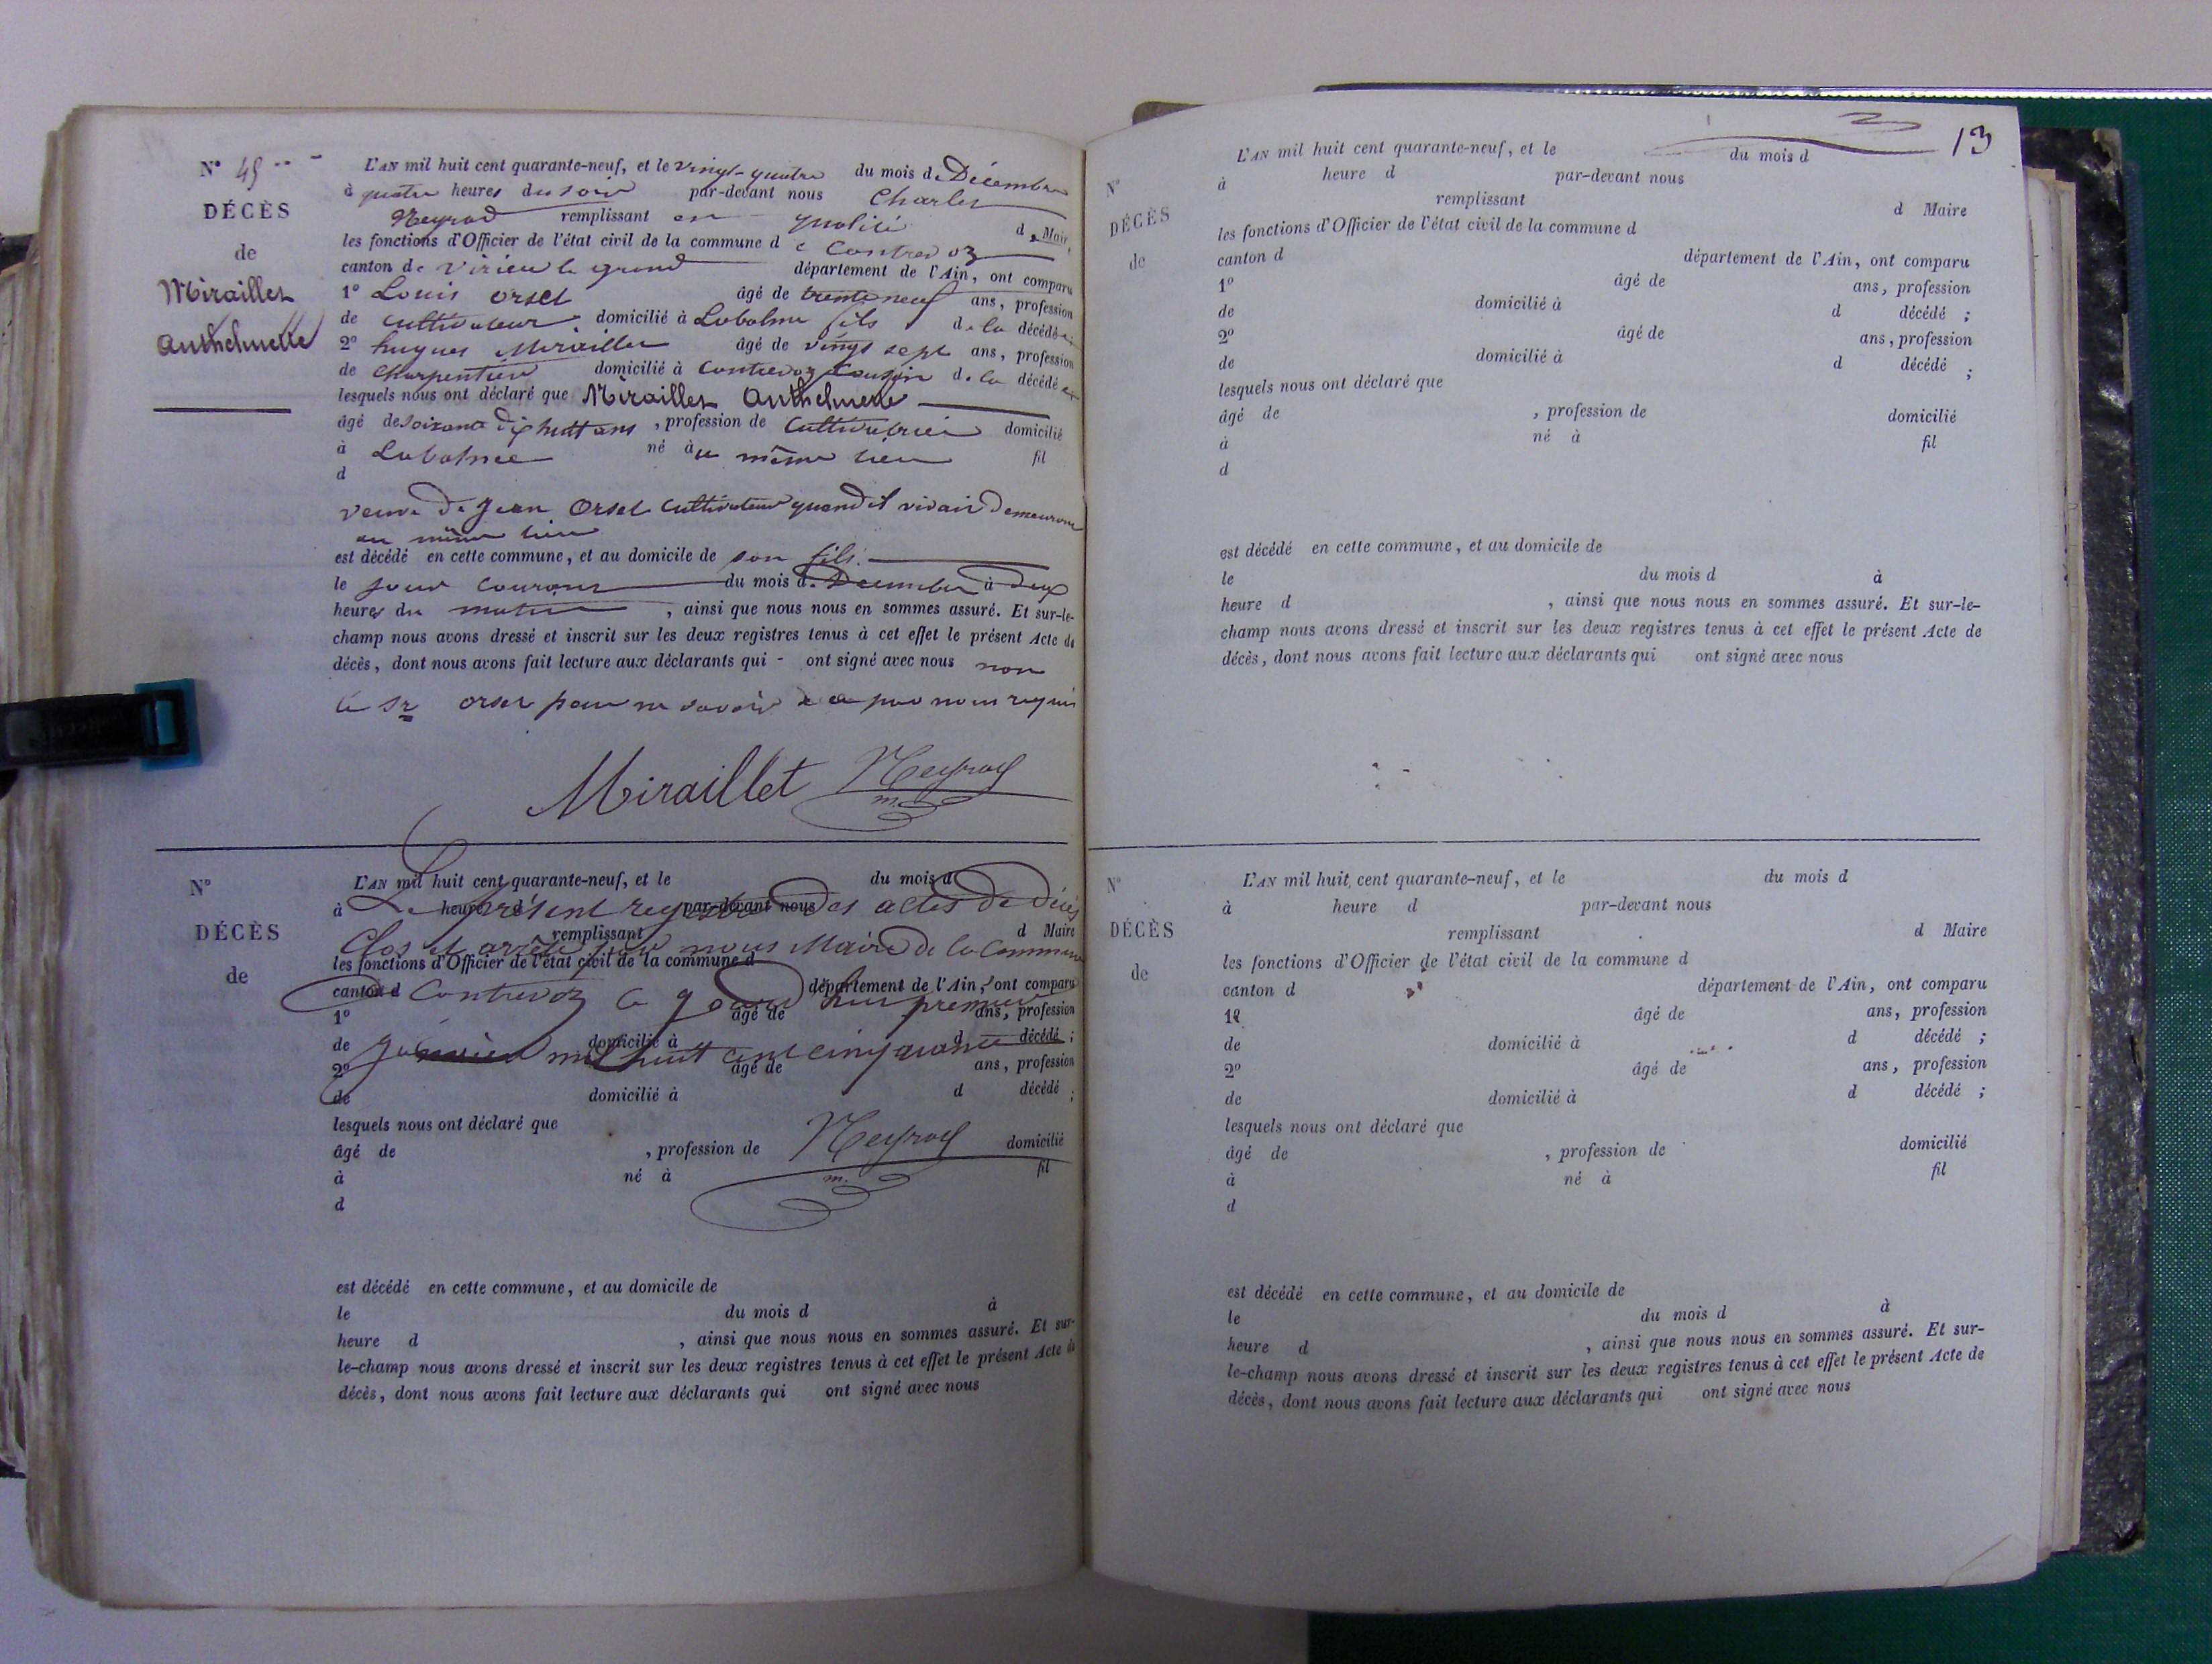 N° 45
DÉCÈS
de
Miraillet
Anthelmette
L'AN mil huit cent quarante-neuf, et le vingt-quatre du mois de Décembre
à quatre heures du soir par-devant nous Charles
Neyrod remplissant en qualité de Maire
les fonctions d'Officier de l'état civil de la commune de Contrevoz
canton de Virieu le grand département de l'Ain, ont comparu
1° Louis Orset âgé de trente neuf ans, profession
de cultivateur domicilié à Labalme fils de la décédée;
2° hugues Miraillet âgé de vingt sept ans, profession
de charpentier domicilié à Contrevoz Cousin de la décédée
lesquels nous ont déclaré que Miraillet Anthelmette
âgé de Soixante dix huit ans, profession de Cultivatrice domicilié
à Labalme né au même lieu fil
d
veuve de Jean Orset Cultivateur quand il vivait Demeurant
au même lieu
est décédé en cette commune, et au domicile de son fils.
le jour courant du mois de Décembre à deux
heures du matin, ainsi que nous nous en sommes assuré. Et sur-le-
champ nous avons dressé et inscrit sur les deux registres tenus à cet effet le présent Acte de
décès, dont nous avons fait lecture aux déclarants qui - ont signé avec nous non
le Sr Orset pour ne savoir de ce par nous requis
Miraillet Neyrod
m.
N°
DÉCÈS
de
L'AN mil huit cent quarante-neuf, et le du mois d
à heure d par-devant nous
remplissant d Maire
les fonctions d'Officier de l'état civil de la commune d
canton d département de l'Ain, ont comparu
1° âgé de ans, profession
de domicilié à d décédé ;
2° âgé de ans, profession
de domicilié à d décédé ;
Le présent registre Des actes de Décès
Clos et arrêté par nous Maire de la Commune
de Contrevoz ce jourd'hui premier
janvier mil huit cent cinquante
lesquels nous ont déclaré que
âgé de , profession de domicilié
à né à fil
d
Neyrod
m.
est décédé en cette commune, et au domicile de
le du mois d à
heure d , ainsi que nous nous en sommes assuré. Et sur-
le-champ nous avons dressé et inscrit sur les deux registres tenus à cet effet le présent Acte de
décès, dont nous avons fait lecture aux déclarants qui ont signé avec nous
13
N°
DÉCÈS
de
L'AN mil huit cent quarante-neuf, et le du mois d
à heure d par-devant nous
remplissant d Maire
les fonctions d'Officier de l'état civil de la commune d
canton d département de l'Ain, ont comparu
1° âgé de ans, profession
de domicilié à d décédé ;
2° âgé de ans, profession
de domicilié à d décédé ;
lesquels nous ont déclaré que
âgé de , profession de domicilié
à né à fil
d
est décédé en cette commune, et au domicile de
le du mois d à
heure d , ainsi que nous nous en sommes assuré. Et sur-le-
champ nous avons dressé et inscrit sur les deux registres tenus à cet effet le présent Acte de
décès, dont nous avons fait lecture aux déclarants qui ont signé avec nous
N°
DÉCÈS
de
L'AN mil huit cent quarante-neuf, et le du mois d
à heure d par-devant nous
remplissant d Maire
les fonctions d'Officier de l'état civil de la commune d
canton d département de l'Ain, ont comparu
1° âgé de ans, profession
de domicilié à d décédé ;
2° âgé de ans, profession
de domicilié à d décédé ;
lesquels nous ont déclaré que
âgé de , profession de domicilié
à né à fil
d
est décédé en cette commune, et au domicile de
le du mois d à
heure d , ainsi que nous nous en sommes assuré. Et sur-
le-champ nous avons dressé et inscrit sur les deux registres tenus à cet effet le présent Acte de
décès, dont nous avons fait lecture aux déclarants qui ont signé avec nous